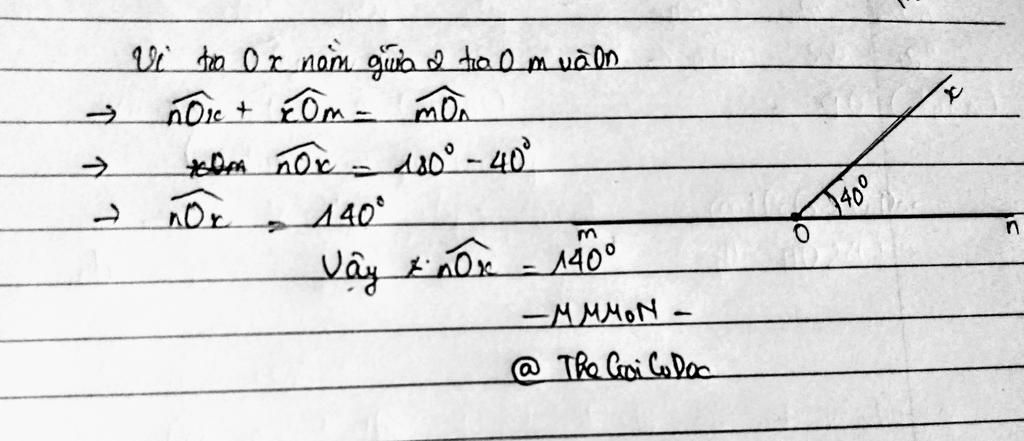 Vì tia Ox nằm giữa 2 tia Om và On
→ nOx + xOm = mOn
→ nOx = 180° - 40°
→ nOx = 140°
Vậy nOx = 140°
- MMMoN -
@ TheGioiCoDoc
x
40°
m
O
n